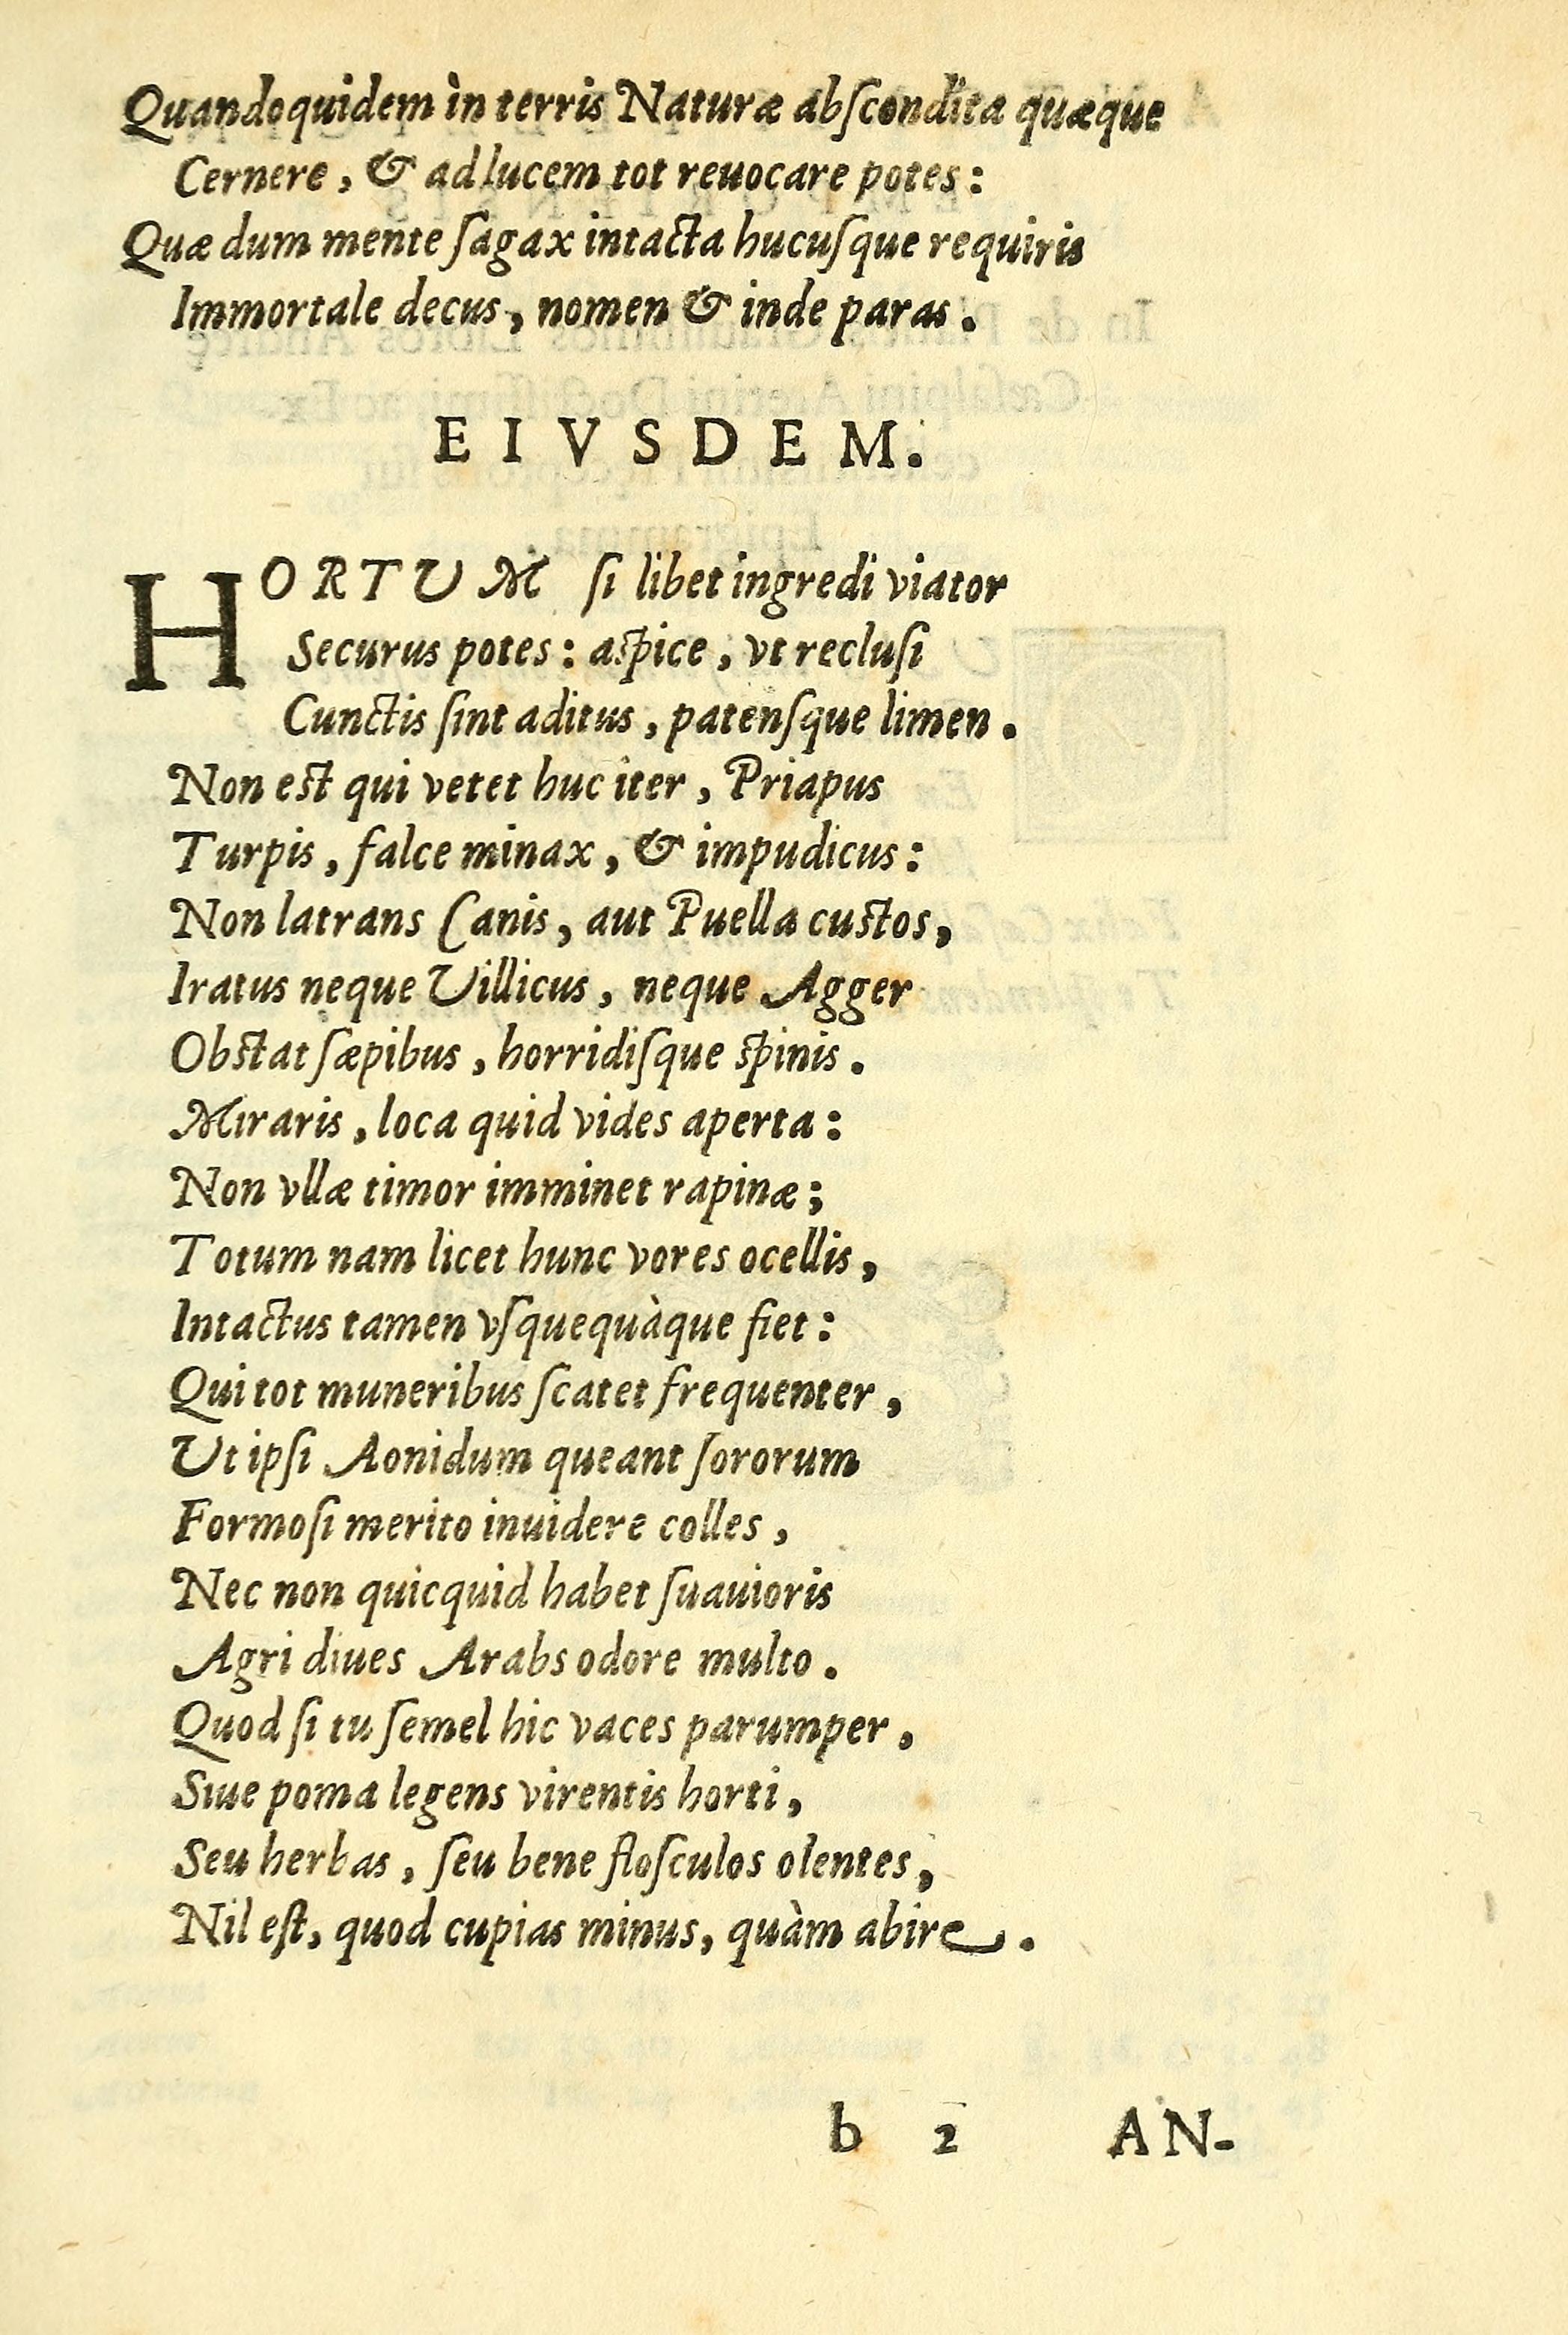 Quandoquidem ìn terris Naturæ abſcondita quæque
Cernere, & ad lucem tot reuocare potes:
Quæ dum mente ſagax intacta hucuſque requiris
Immortale decus, nomen & inde paras.
EIVSDEM.
HORTUM ſi libet ingredi viator
Securus potes: aſpice, vt recluſi
Cunctis ſint aditus, patenſque limen.
Non eſt qui vetet huc iter, Priapus
Turpis, falce minax, & impudicus:
Non latrans Canis, aut Puella cuſtos,
Iratus neque Uillicus, neque Agger
Obſtat ſæpibus, horridiſque ſpinis.
Miraris, loca quid vides aperta:
Non vllæ timor imminet rapinæ;
Totum nam licet hunc vores ocellis,
Intactus tamen vſquequàque fiet:
Qui tot muneribus ſcatet frequenter,
Ut ipſi Aonidum queant ſororum
Formoſi merito inuidere colles,
Nec non quicquid habet ſuauioris
Agri diues Arabs odore multo.
Quod ſi tu ſemel hic vaces parumper,
Siue poma legens virentis horti,
Seu herbas, ſeu bene floſculos olentes,
Nil eſt, quod cupias minus, quàm abire.
b 2 AN-